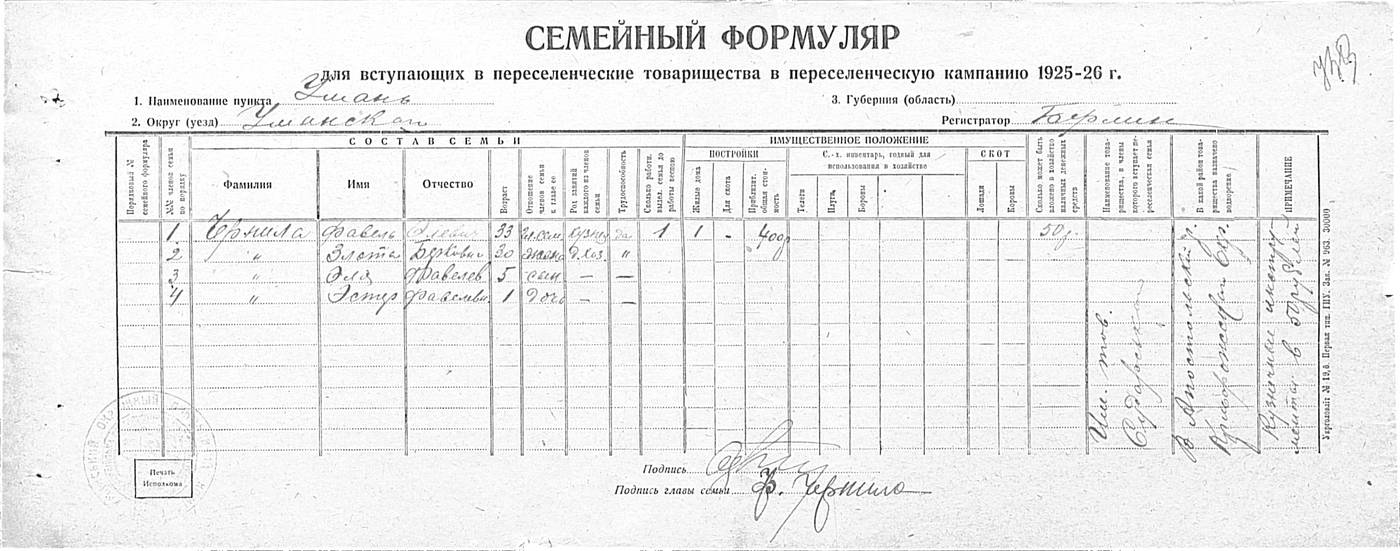 СЕМЕЙНЫЙ ФОРМУЛЯР
для вступающих в переселенческие товарищества в переселенческую кампанию 1925-26 г.
1. Наименование пункта Умань
3. Губерния (область)
2. Округ (уезд) Уманской
Регистратор
СОСТАВ СЕМЬИ
ИМУЩЕСТВЕННОЕ ПОЛОЖЕНИЕ
Порядковый № семейного формуляра
№№ членов семьи по порядку
Фамилия
Имя
Отчество
Возраст
Отношение членов семьи к главе ее
Род занятий каждого из членов семьи
Трудоспособность
Сколько работн. выдел. семья до работы весною
ПОСТРОЙКИ
Жилые дома
Для скота
Приблизит. общая стоимость
С.-х. инвентарь, годный для использования в хозяйстве
Телеги
Плуги
Бороны
СКОТ
Лошади
Коровы
Сколько может быть вложено в хозяйство наличных денежных средств
Наименование товарищества, в члены которого вступает переселенческая семья
В какой район товарищества назначено водворение
ПРИМЕЧАНИЕ
1 Чернила Файвель 33 да 1 1 - 400р 50р.
2 " Злота Беркович 30 жена д.хоз. "
3 " Эля Файвелев 5 сын — —
4 " Эстер Файвелевн. 1 дочь — —
Им. тов.
В Апостольский р.
Криворожский окр.
Кузнечный инструмент
Подпись
Подпись главы семьи Ф. Чернила
Печать
Исполкома
Укрголовліт № 19,6. Первая тип. ГИУ. Зак. № 963. 30000